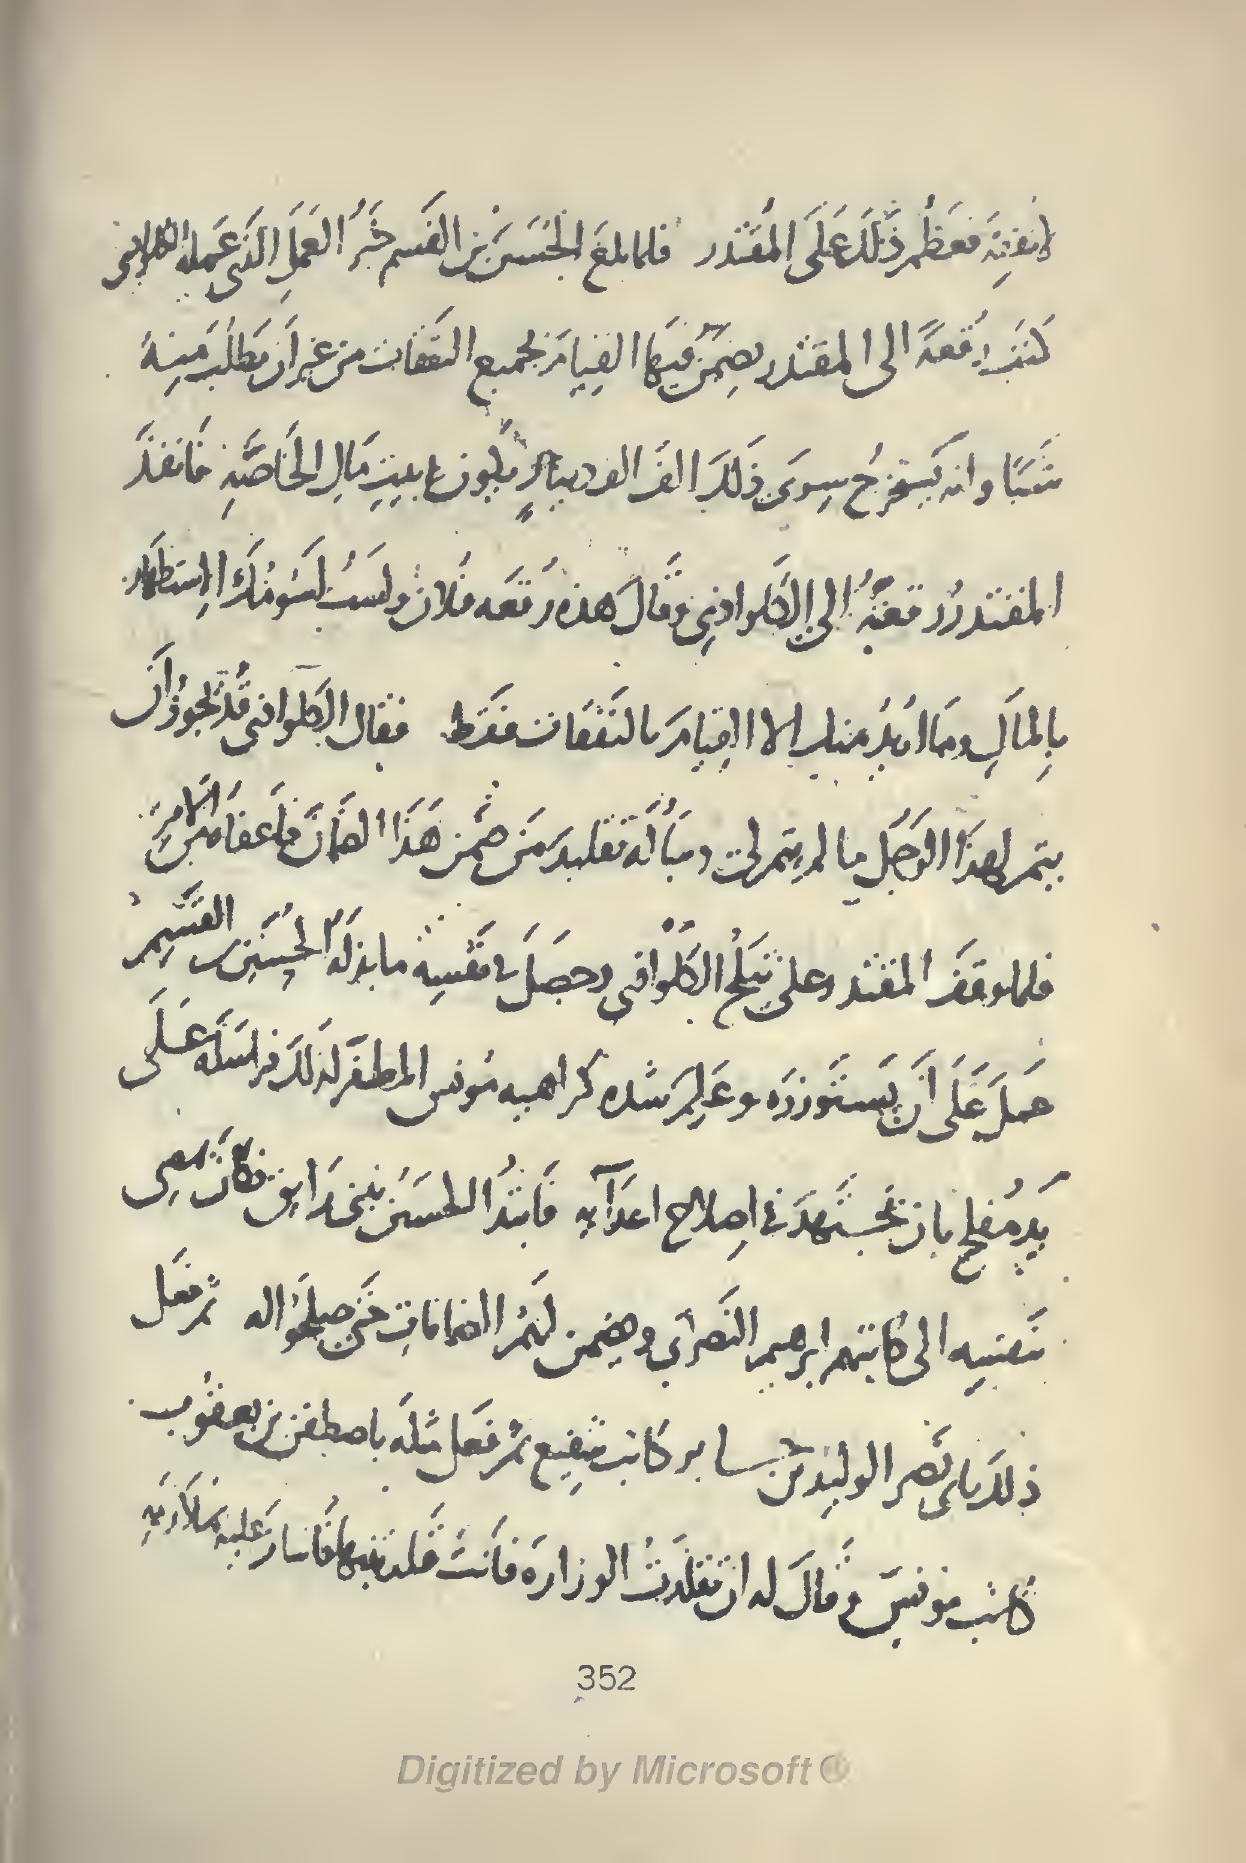 لا بقية فعظم ذلك على المقتدر فلما بلغ الحسين بن القسم خبر العمل الذى عمله الكلواذى
كتب رقعة الى المقتدر يضمن فيها القيام بجميع النفقات من غير ان يطلب منه
شيئا وانه يستخرج سوى ذلك الف الف دينار يكون فى بيت مال الخاصة فانفذ
المقتدر رقعته الى الكلواذى وقال هذه رقعة فلان ولست اسومك الاستظهار
بالمال وما اريد منك الا القيام بالنفقات فقط فقال الكلواذى قد يجوز ان
يتم لهذا الرجل ما لم يتم لى وسأله تقليد من ضمن هذا الضمان فاعفاه من الامر
فلما وقف المقتدر على تبلح الكلواذى وحصل فى نفسه ما بذله الحسين بن القسم
عمل على ان يستوزره وعلم شده كراهيه مونس المظفر لذلك فراسله على
يد مفلح بان يجتهد فى اصلاح اعدآيه فابتدا الحسين ببنى رايق فكان يمضى
بنفسه الى كاتبهم ابرهيم النصرانى وضمن لهم الضمانات حتى صلحوا له ثم فعل
ذلك بابى نصر الوليد بن سابر كاتب شفيع ثم فعل مثله باصطفن بن يعقوب
كاتب مونس وقال له ان تقلدت الوزاره فانت قلدتنيها فاشار عليه بملازمه
352
Digitized by Microsoft ®